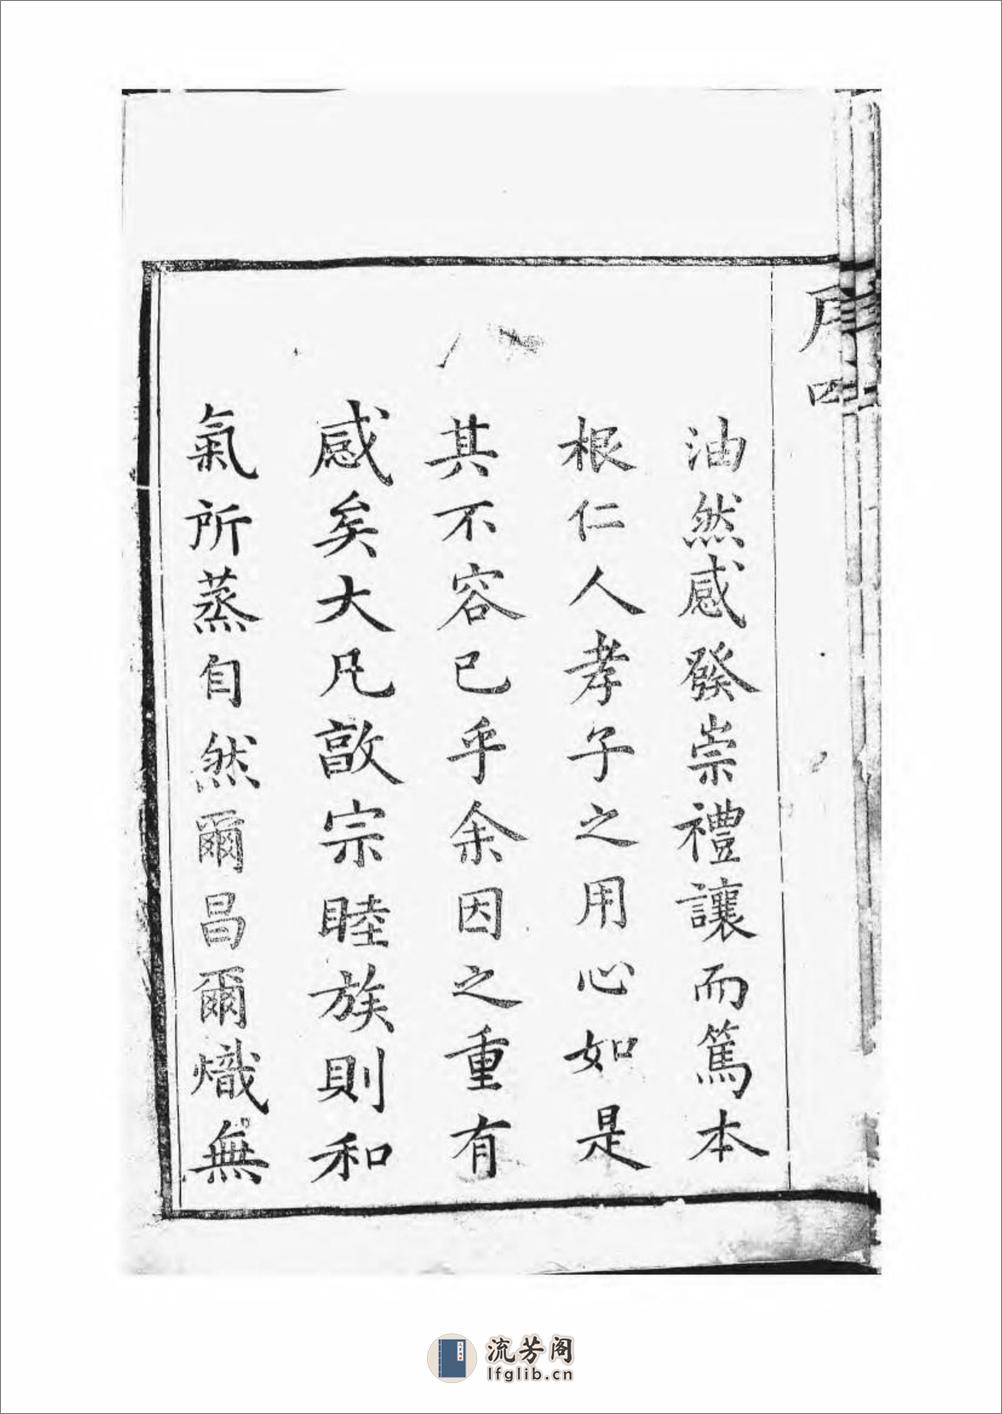 序
四
油然感發崇禮讓而篤本
根仁人孝子之用心如是
其不容已乎余因之重有
感矣大凡敦宗睦族則和
氣所蒸自然爾昌爾熾無
流芳阁
lfglib.cn